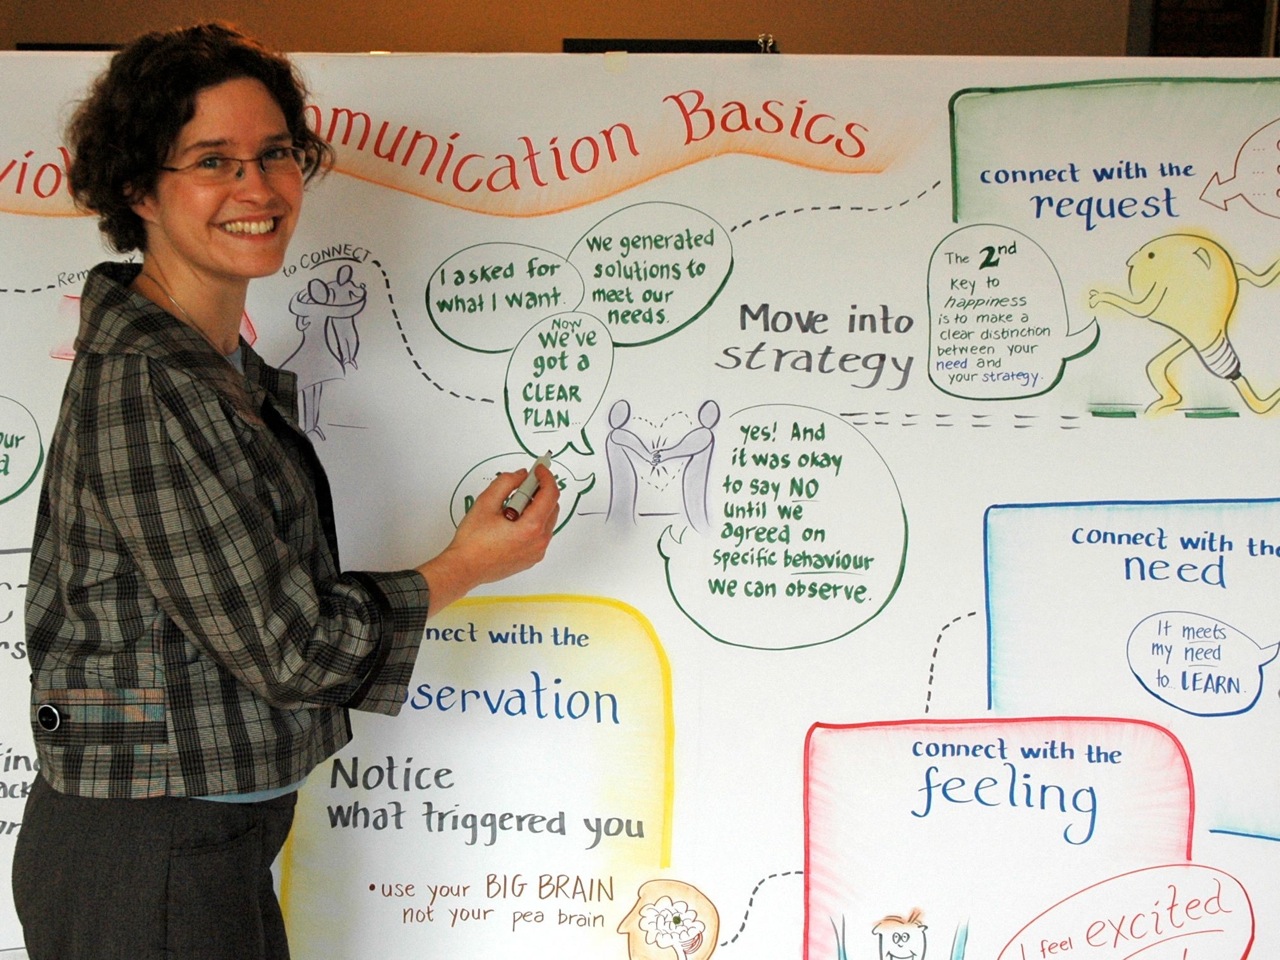 mmunication Basics
to CONNECT
I asked for
what I want.
We generated
solutions to
meet our
needs.
NOW
We've
got a
CLEAR
PLAN...
Move into
strategy
yes! And
it was okay
to say NO
until we
agreed on
specific behaviour
we can observe.
connect with the
request
The 2nd
key to
happiness
is to make a
clear distinction
between your
need and
your strategy.
connect with the
need
It meets
my need
to LEARN.
nect with the
servation
Notice
what triggered you
• use your BIG BRAIN
not your pea brain
connect with the
feeling
I feel excited